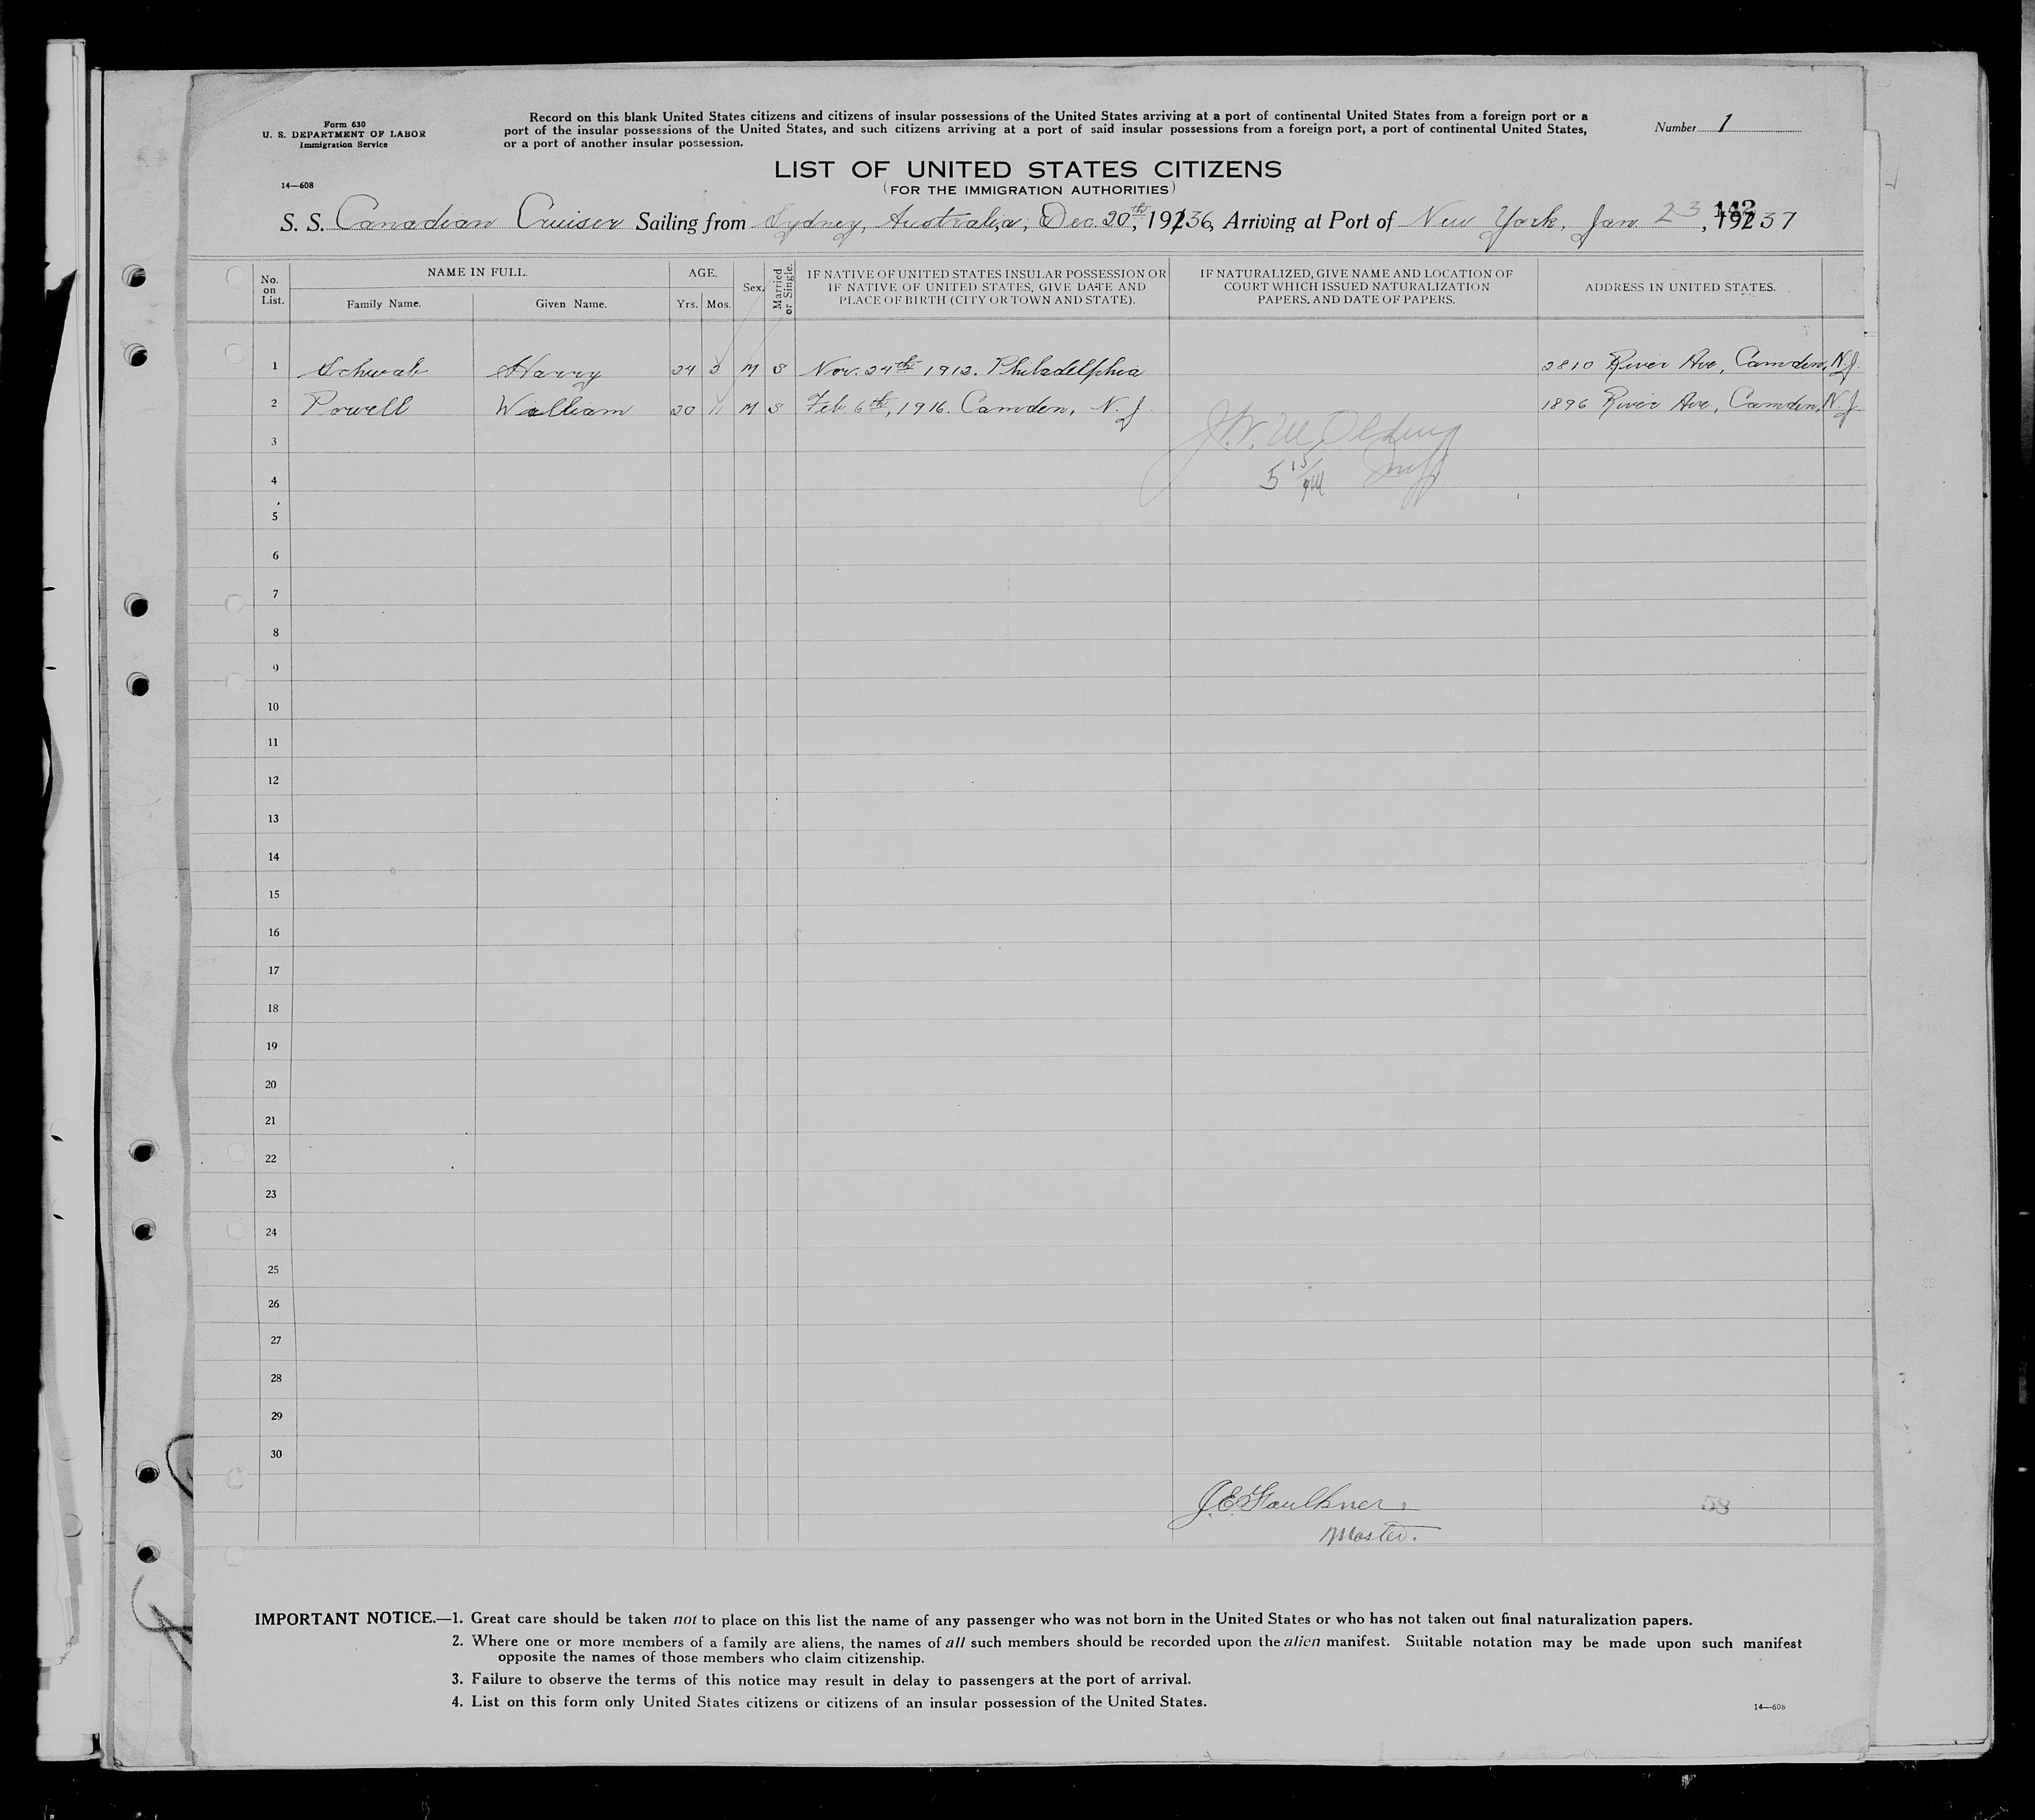 Form 630
U. S. DEPARTMENT OF LABOR
Immigration Service
14—608
Record on this blank United States citizens and citizens of insular possessions of the United States arriving at a port of continental United States from a foreign port or a
port of the insular possessions of the United States, and such citizens arriving at a port of said insular possessions from a foreign port, a port of continental United States,
or a port of another insular possession.
Number 1
LIST OF UNITED STATES CITIZENS
(FOR THE IMMIGRATION AUTHORITIES)
142
S. S. Canadian Cruiser Sailing from Sydney, Australia, Dec. 20th, 19236, Arriving at Port of New York, Jan. 23, 19237
No. on List.
NAME IN FULL.
Family Name.
Given Name.
AGE.
Yrs.
Mos.
Sex.
Married or Single.
IF NATIVE OF UNITED STATES INSULAR POSSESSION OR
IF NATIVE OF UNITED STATES, GIVE DATE AND
PLACE OF BIRTH (CITY OR TOWN AND STATE).
IF NATURALIZED, GIVE NAME AND LOCATION OF
COURT WHICH ISSUED NATURALIZATION
PAPERS, AND DATE OF PAPERS.
ADDRESS IN UNITED STATES.
1 Schwab Harry 24 2 M S Nov. 24th 1912. Philadelphia 2810 River Ave, Camden, N.J.
2 Powell William 20 11 M S Feb. 6th, 1916. Camden, N.J. 1896 River Ave., Camden, N.J.
3
4
5 15/PM
5
6
7
8
9
10
11
12
13
14
15
16
17
18
19
20
21
22
23
24
25
26
27
28
29
30
J.E. Faulkner.
Master.
58
IMPORTANT NOTICE.—1. Great care should be taken not to place on this list the name of any passenger who was not born in the United States or who has not taken out final naturalization papers.
2. Where one or more members of a family are aliens, the names of all such members should be recorded upon the alien manifest. Suitable notation may be made upon such manifest
opposite the names of those members who claim citizenship.
3. Failure to observe the terms of this notice may result in delay to passengers at the port of arrival.
4. List on this form only United States citizens or citizens of an insular possession of the United States.
14—608